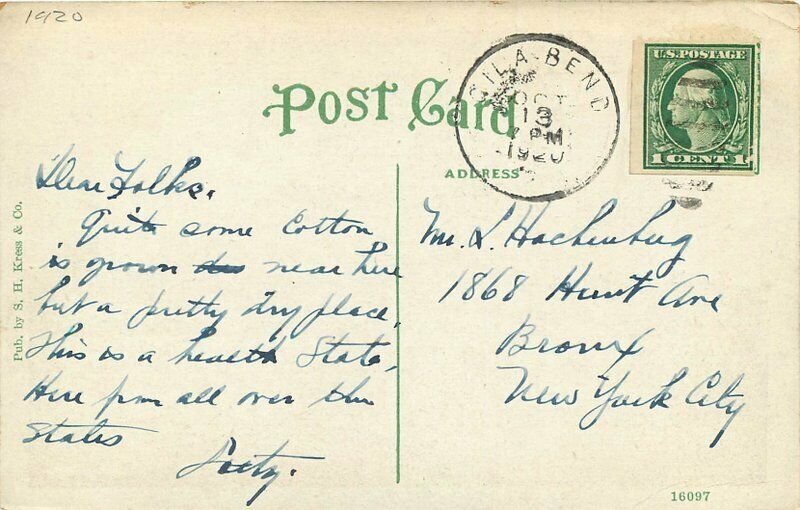 1920
Post Card
GILA BEND
OCT
13
PM
1920
U.S. POSTAGE
1 CENT 1
ADDRESS
Dear Folks.
Quite some Cotton
is grown near here
but a pretty dry place.
This is a health State,
Here from all over the
States
Pub. by S. H. Kress & Co.
Mr. L. Hachenburg
1868 Hunt Ave
Bronx
New York City
16097